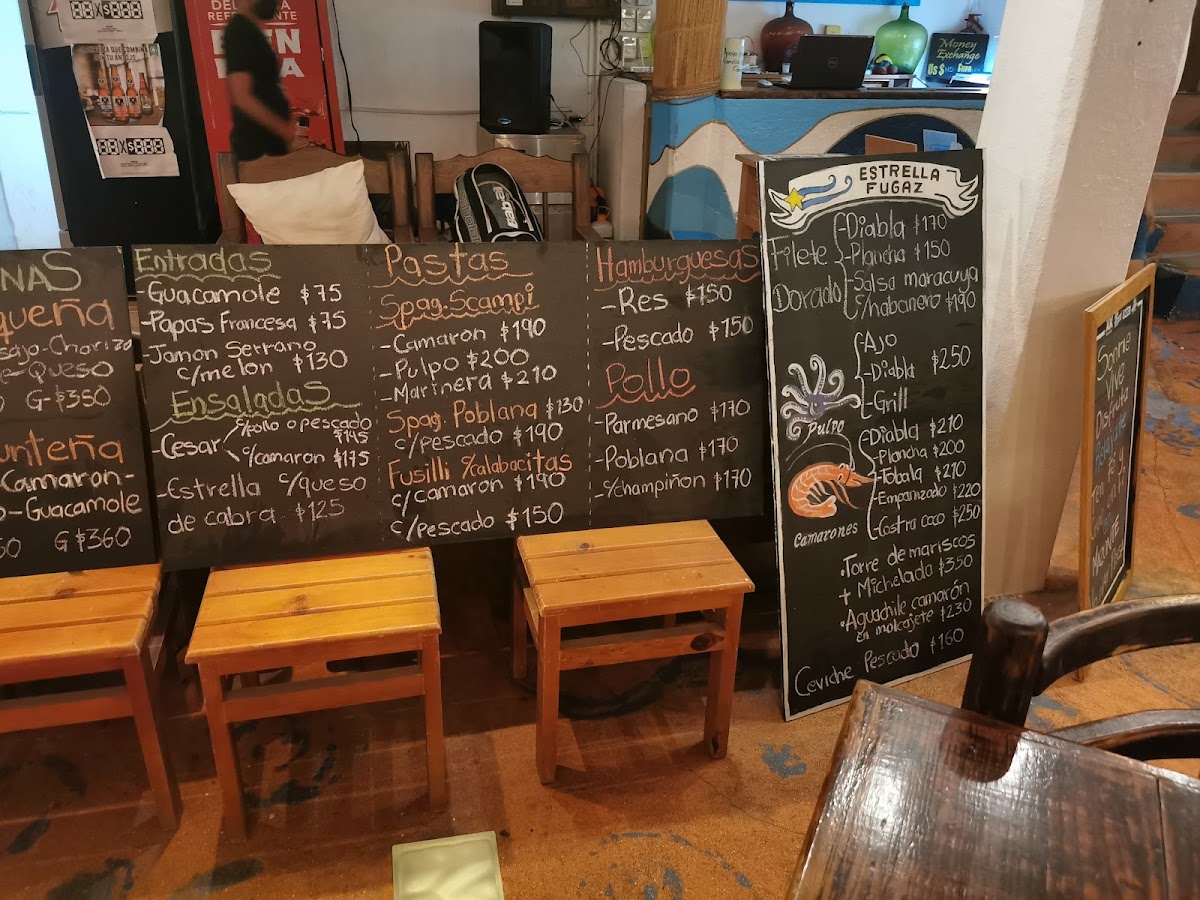 DEL
REFRESCANTE
QUE COMBINA
CON TU ANTOJO
Money
Exchange
US $
DELL
NAS
queña
Chorizo
Queso
G-$350
unteña
Camaron-
-Guacamole
G $360
Entradas
-Guacamole $75
-Papas Francesa $75
-Jamon Serrano
c/melon $130
Ensaladas
-Cesar
c/pollo o pescado
$145
c/camaron $175
-Estrella c/queso
de cabra $125
Pastas
Spag. Scampi
-Camaron $190
-Pulpo $200
-Marinera $210
Spag. Poblana $130
c/pescado $190
Fusilli c/calabacitas
c/camaron $190
c/pescado $150
Hamburguesas
-Res $150
-Pescado $150
Pollo
-Parmesano $170
-Poblana $170
-c/champiñon $170
ESTRELLA
FUGAZ
Filete
Dorado
-Diabla $170
-Plancha $150
-Salsa maracuya
c/habanero $190
Pulpo
-Ajo
-Diabla $250
-Grill
Camarones
-Diabla $210
-Plancha $200
-Tobala $210
-Empanizado $220
-Costra coco $250
•Torre de mariscos
+ Michelada $350
•Aguachile camarón
en molcajete $230
Ceviche Pescado $160
Sonrie
Vive
Disfruta